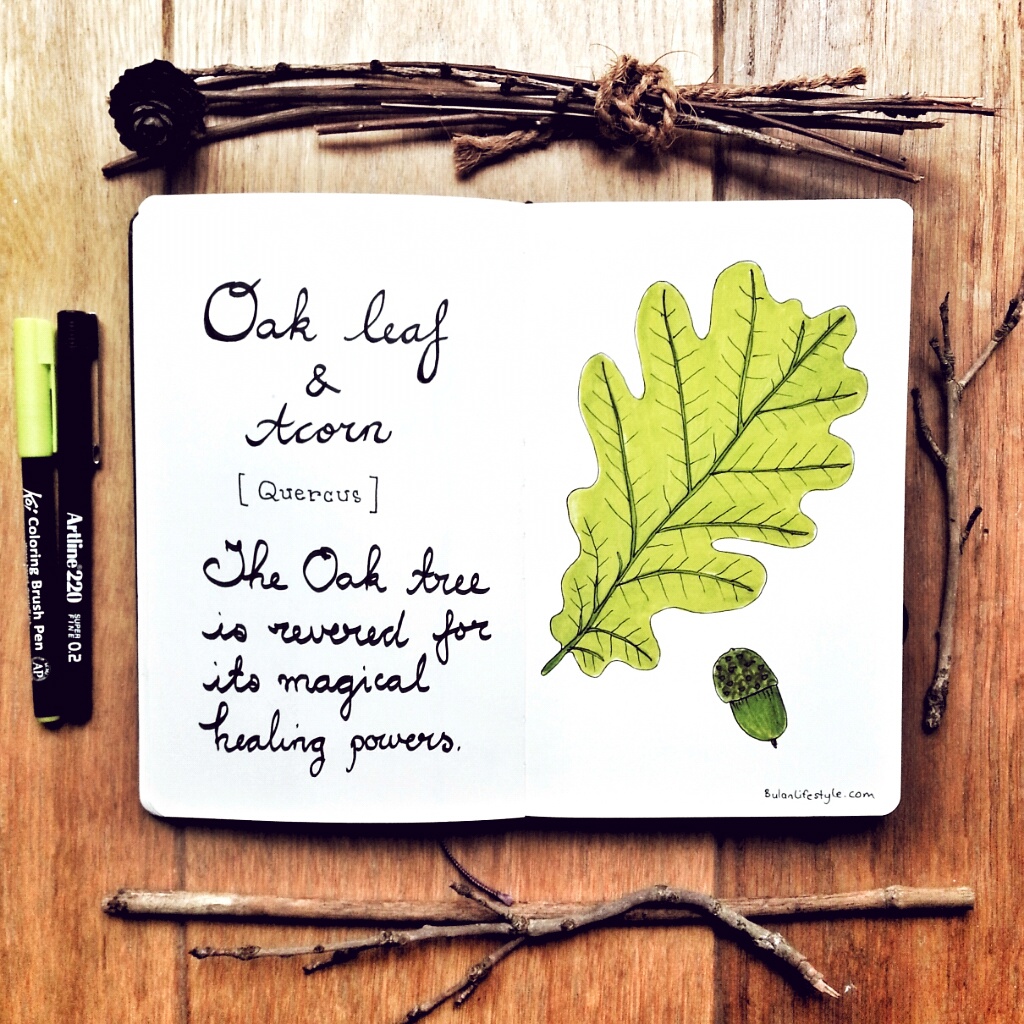 Oak leaf
&
Acorn
[Quercus]
The Oak tree
is revered for
its magical
healing powers.
BulanLifestyle.com
Koi Coloring Brush Pen AP
Artline 220 SUPER FINE 0.2